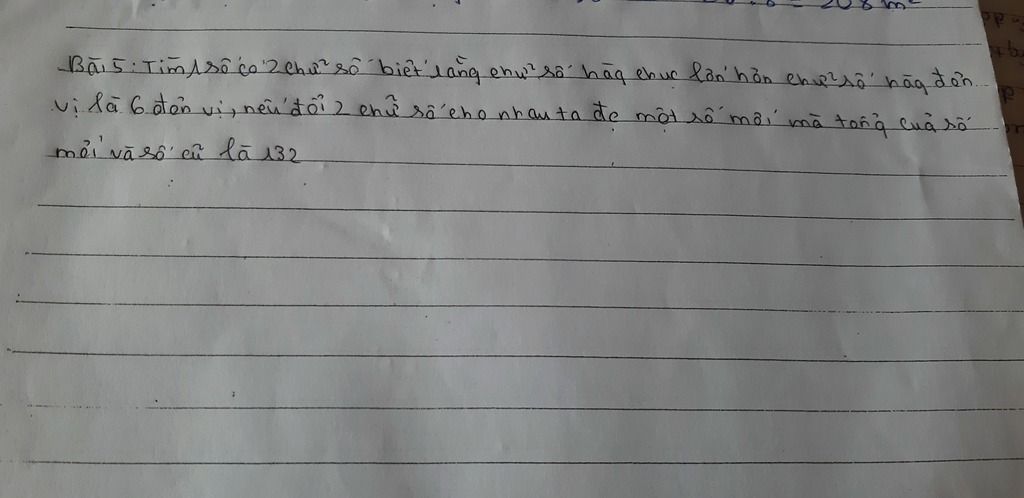 20.8 = 208 m²
Bài 5: Tìm 1 số có 2 chữ số biết rằng chữ số hàg chục lớn hơn chữ số hàg đơn
vị là 6 đơn vị, nếu đổi 2 chữ số cho nhau ta đc một số mới mà tổng cuả số
mới và số cũ là 132